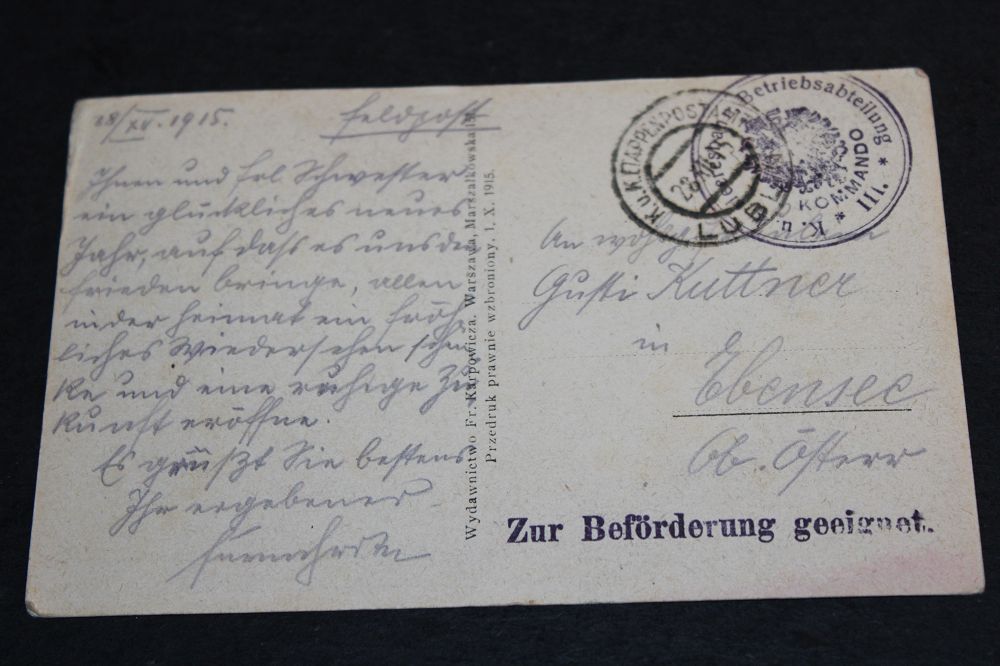 28/XII. 1915. Feldpost
Ihnen und Frl. Schwester
ein glückliches neues
Jahr, auf dass es uns den
Frieden bringe, allen
in der Heimat ein fröh-
liches Wiedersehen schen-
ke und eine ruhige Zu-
kunft eröffne.
Es grüßt Sie bestens
Ihr ergebener
Wydawnictwo Fr. Karpowicza, Warszawa, Marszałkowska
Przedruk prawnie wzbroniony. 1. X. 1915.
K.u.K. ETAPPENPOSTAMT
LUBLIN
Betriebsabteilung
KOMMANDO
K. u. * III. *
An
Gusti Kuttner
in
Ebensee
Ob. Österr
Zur Beförderung geeignet.